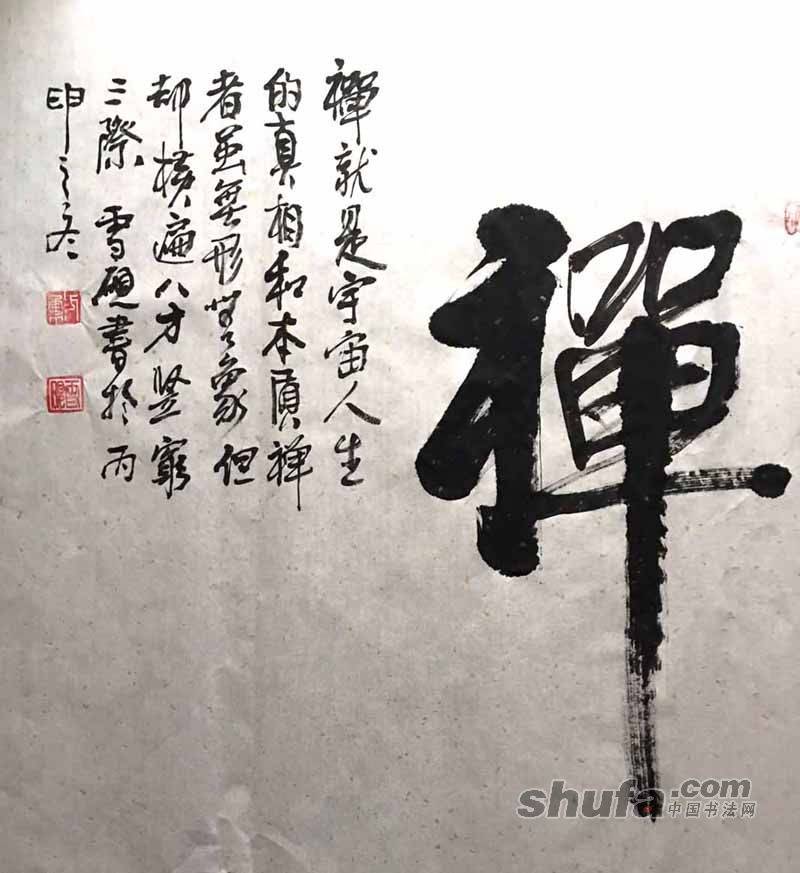 禪
禪就是宇宙人生
的真相和本質禪
者虽無形無象但
却横遍八方竖窮
三際 雪砚書於丙
申之冬
shufa.com
中国书法网